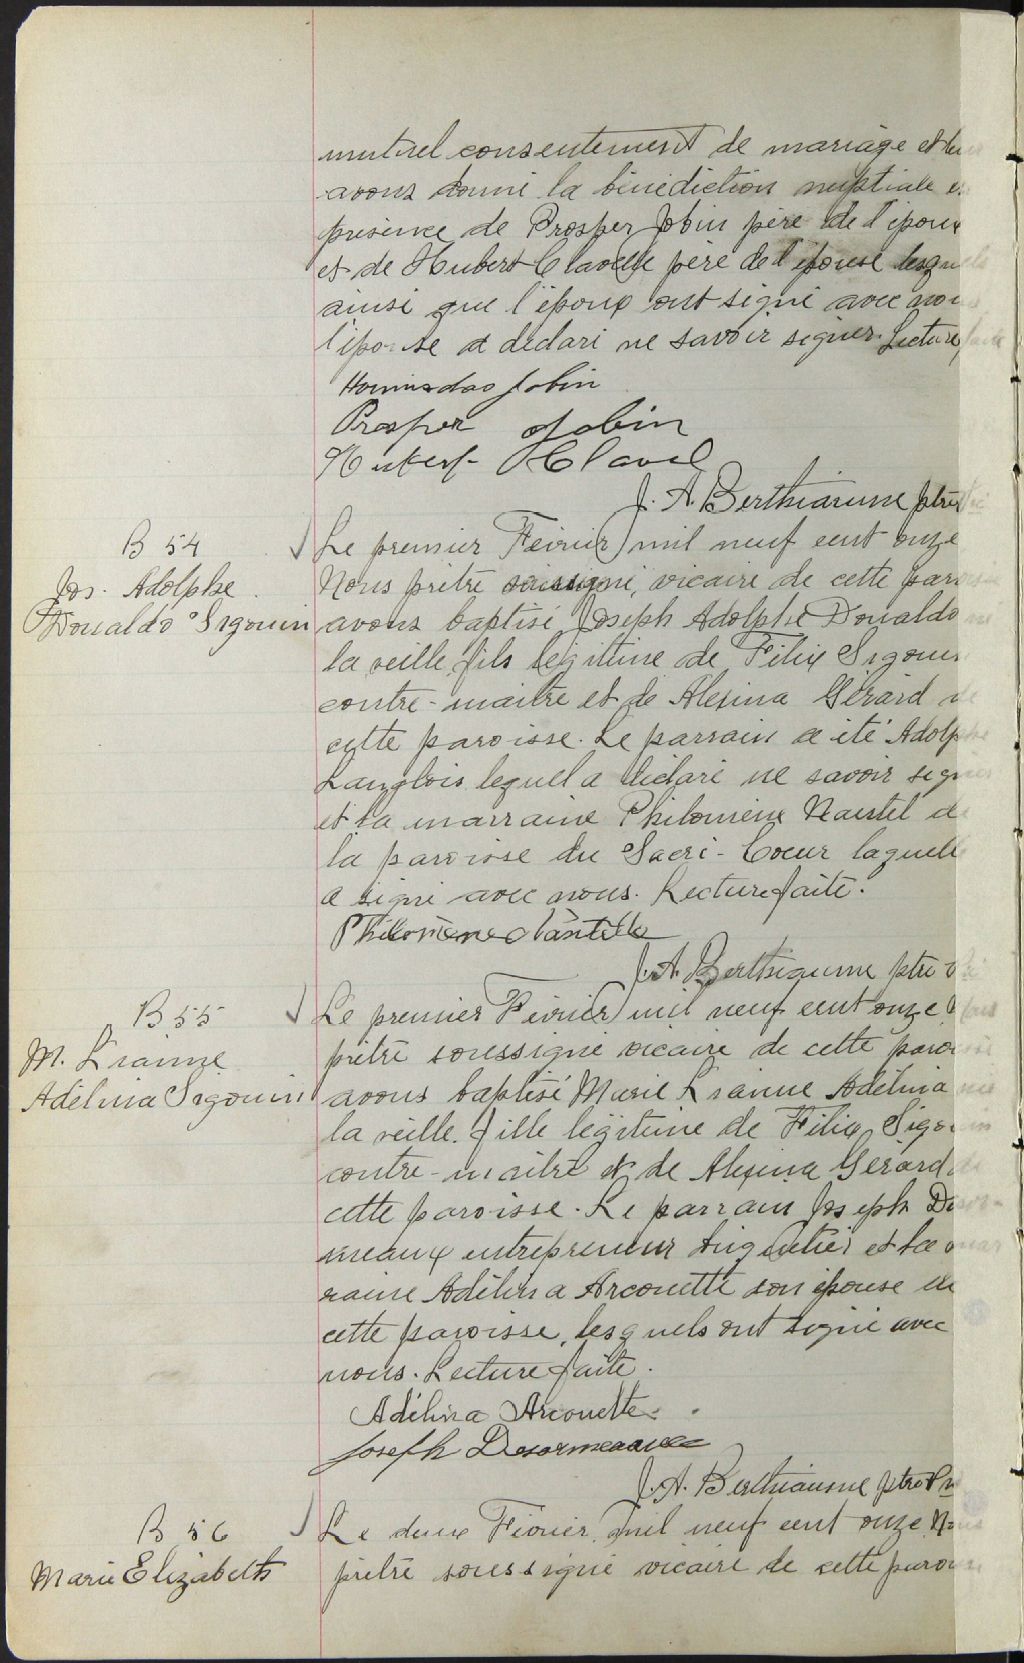 mutuel consentement de mariage et leur
avons donné la bénédiction nuptiale en
présence de Prosper Jobin père de l'époux
et de Hubert Clavelle père de l'épouse lesquels
ainsi que l'époux ont signé avec nous
l'épouse a déclaré ne savoir signer. Lecture faite
Hormisdas Jobin
Prosper Jobin
Hubert Clavel
J. A. Berthiaume ptre
B 54
Jos. Adolphe
Donaldo Sigouin
Le premier Février mil neuf cent onze
Nous prêtre soussigné, vicaire de cette paroisse
avons baptisé Joseph Adolphe Donaldo né
la veille fils légitime de Félix Sigouin
contre-maitre et de Alexina Gérard de
cette paroisse. Le parrain a été Adolphe
Langlois lequel a déclaré ne savoir signer
et la marraine Philomène Nantel de
la paroisse du Sacré-Coeur laquelle
a signé avec nous. Lecture faite.
Philomène Nantelle
J. A. Berthiaume ptre
B 55
M.
Adélina Sigouin
Le premier Février mil neuf cent onze Nous
prêtre soussigné vicaire de cette paroisse
avons baptisé Marie Adélina née
la veille. fille légitime de Félix Sigouin
contre-maitre et de Alexina Gérard de
cette paroisse. Le parrain Joseph Désor-
meaux entrepreneur et la mar
raine Adélina Arcouette son épouse de
cette paroisse, lesquels ont signé avec
nous. Lecture faite.
Adélina Arcouette
Joseph Desormeaux
J. A. Berthiaume ptre
B 56
Marie Elizabeth
Le deux Février mil neuf cent onze Nous
prêtre soussigné vicaire de cette paroisse